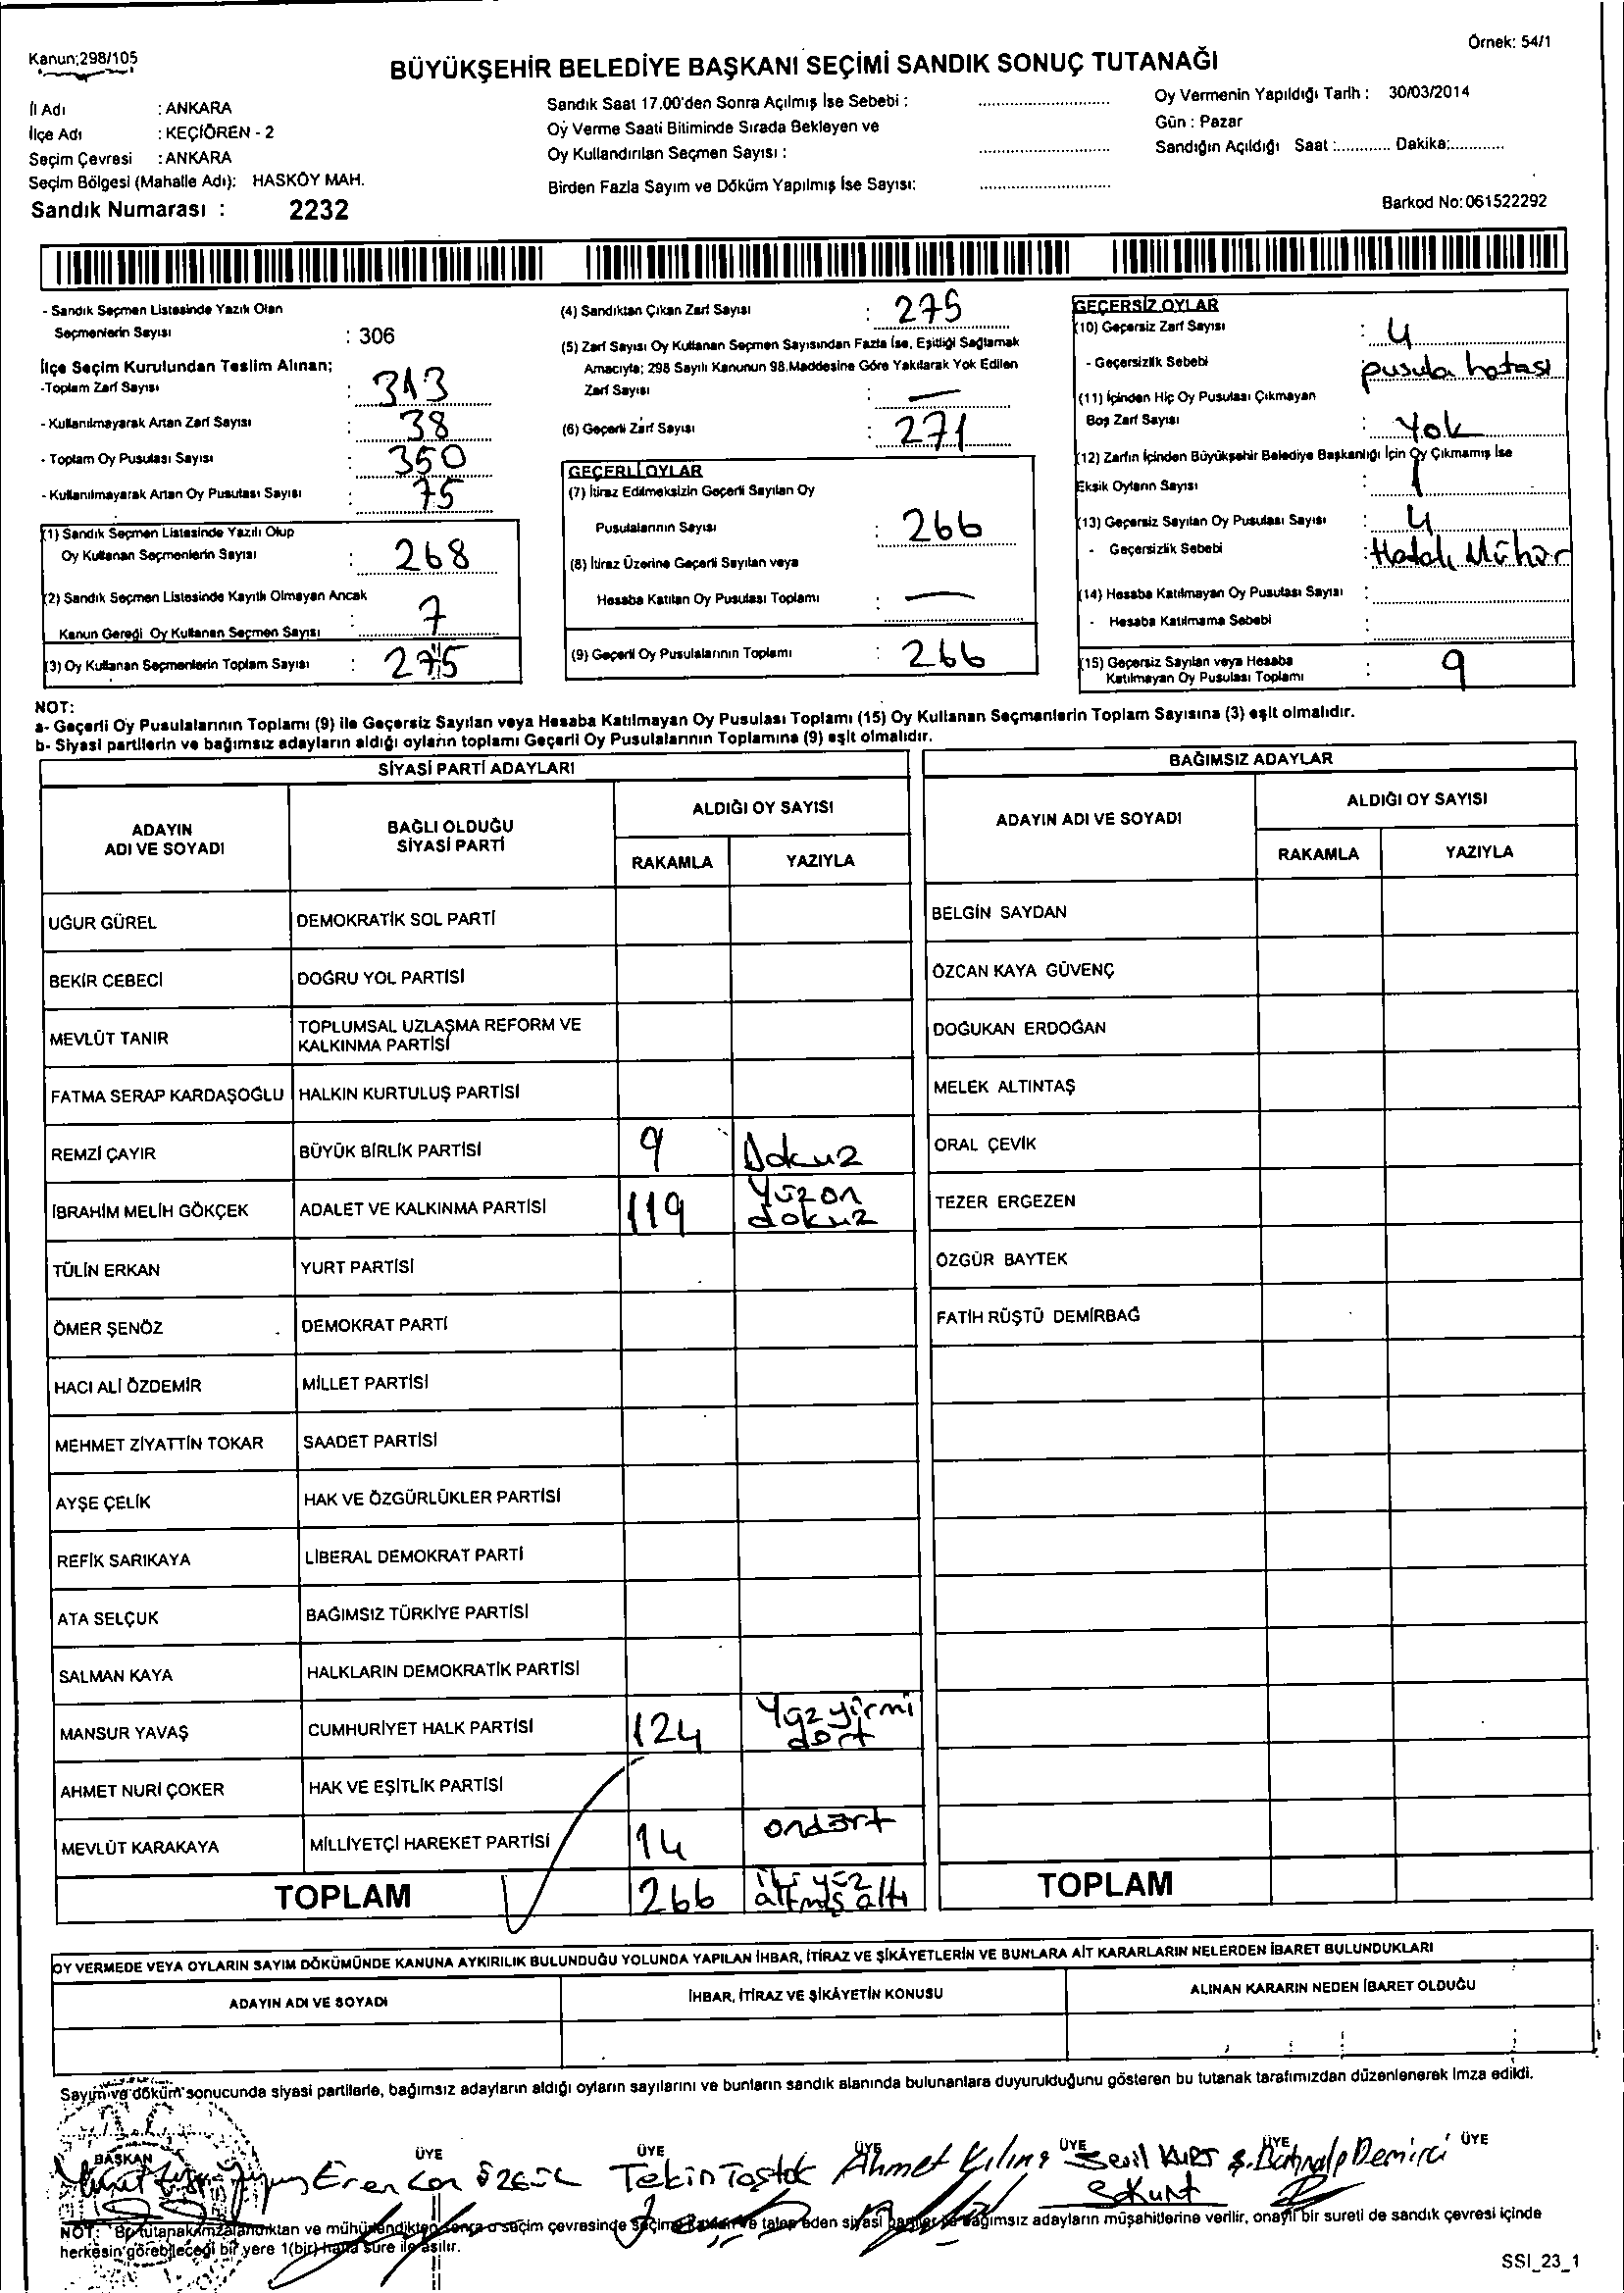 Kanun:298/105
Örnek: 54/1
BÜYÜKŞEHİR BELEDİYE BAŞKANI SEÇİMİ SANDIK SONUÇ TUTANAĞI
İl Adı : ANKARA
İlçe Adı : KEÇİÖREN - 2
Seçim Çevresi : ANKARA
Seçim Bölgesi (Mahalle Adı): HASKÖY MAH.
Sandık Numarası : 2232
Sandık Saat 17.00'den Sonra Açılmış İse Sebebi :
Oy Verme Saati Bitiminde Sırada Bekleyen ve
Oy Kullandırılan Seçmen Sayısı :
Birden Fazla Sayım ve Döküm Yapılmış İse Sayısı:
Oy Vermenin Yapıldığı Tarih : 30/03/2014
Gün : Pazar
Sandığın Açıldığı Saat :............ Dakika:............
Barkod No: 061522292
- Sandık Seçmen Listesinde Yazılı Olan
Seçmenlerin Sayısı : 306
İlçe Seçim Kurulundan Teslim Alınan;
-Toplam Zarf Sayısı : 313
- Kullanılmayarak Artan Zarf Sayısı : 38
- Toplam Oy Pusulası Sayısı : 350
- Kullanılmayarak Artan Oy Pusulası Sayısı : 75
(1) Sandık Seçmen Listesinde Yazılı Olup
Oy Kullanan Seçmenlerin Sayısı : 268
(2) Sandık Seçmen Listesinde Kayıtlı Olmayan Ancak
Kanun Gereği Oy Kullanan Seçmen Sayısı : 7
(3) Oy Kullanan Seçmenlerin Toplam Sayısı : 275
(4) Sandıktan Çıkan Zarf Sayısı : 275
(5) Zarf Sayısı Oy Kullanan Seçmen Sayısından Fazla İse, Eşitliği Sağlamak
Amacıyla; 298 Sayılı Kanunun 98.Maddesine Göre Yakılarak Yok Edilen
Zarf Sayısı : —
(6) Geçerli Zarf Sayısı : 271
GEÇERLİ OYLAR
(7) İtiraz Edilmeksizin Geçerli Sayılan Oy
Pusulalarının Sayısı : 266
(8) İtiraz Üzerine Geçerli Sayılan veya
Hesaba Katılan Oy Pusulası Toplamı : —
(9) Geçerli Oy Pusulalarının Toplamı : 266
GEÇERSİZ OYLAR
(10) Geçersiz Zarf Sayısı : 4
- Geçersizlik Sebebi pusula hatası
(11) İçinden Hiç Oy Pusulası Çıkmayan
Boş Zarf Sayısı : Yok
(12) Zarfın İçinden Büyükşehir Belediye Başkanlığı İçin Oy Çıkmamış İse
Eksik Oyların Sayısı : 1
(13) Geçersiz Sayılan Oy Pusulası Sayısı : 4
- Geçersizlik Sebebi : Hatalı Mühür
(14) Hesaba Katılmayan Oy Pusulası Sayısı :
- Hesaba Katılmama Sebebi :
(15) Geçersiz Sayılan veya Hesaba
Katılmayan Oy Pusulası Toplamı : 9
NOT:
a- Geçerli Oy Pusulalarının Toplamı (9) ile Geçersiz Sayılan veya Hesaba Katılmayan Oy Pusulası Toplamı (15) Oy Kullanan Seçmenlerin Toplam Sayısına (3) eşit olmalıdır.
b- Siyasi partilerin ve bağımsız adayların aldığı oyların toplamı Geçerli Oy Pusulalarının Toplamına (9) eşit olmalıdır.
SİYASİ PARTİ ADAYLARI
ADAYIN ADI VE SOYADI
BAĞLI OLDUĞU SİYASİ PARTİ
ALDIĞI OY SAYISI
RAKAMLA YAZIYLA
UĞUR GÜREL DEMOKRATİK SOL PARTİ
BEKİR CEBECİ DOĞRU YOL PARTİSİ
MEVLÜT TANIR TOPLUMSAL UZLAŞMA REFORM VE
KALKINMA PARTİSİ
FATMA SERAP KARDAŞOĞLU HALKIN KURTULUŞ PARTİSİ
REMZİ ÇAYIR BÜYÜK BİRLİK PARTİSİ 9 Dokuz
İBRAHİM MELİH GÖKÇEK ADALET VE KALKINMA PARTİSİ 119 Yüzon
dokuz
TÜLİN ERKAN YURT PARTİSİ
ÖMER ŞENÖZ DEMOKRAT PARTİ
HACI ALİ ÖZDEMİR MİLLET PARTİSİ
MEHMET ZİYATTİN TOKAR SAADET PARTİSİ
AYŞE ÇELİK HAK VE ÖZGÜRLÜKLER PARTİSİ
REFİK SARIKAYA LİBERAL DEMOKRAT PARTİ
ATA SELÇUK BAĞIMSIZ TÜRKİYE PARTİSİ
SALMAN KAYA HALKLARIN DEMOKRATİK PARTİSİ
MANSUR YAVAŞ CUMHURİYET HALK PARTİSİ 124 Yüz yirmi
dört
AHMET NURİ ÇOKER HAK VE EŞİTLİK PARTİSİ
MEVLÜT KARAKAYA MİLLİYETÇİ HAREKET PARTİSİ 14 ondört
TOPLAM 266 iki yüz
altmış altı
BAĞIMSIZ ADAYLAR
ADAYIN ADI VE SOYADI
ALDIĞI OY SAYISI
RAKAMLA YAZIYLA
BELGİN SAYDAN
ÖZCAN KAYA GÜVENÇ
DOĞUKAN ERDOĞAN
MELEK ALTINTAŞ
ORAL ÇEVİK
TEZER ERGEZEN
ÖZGÜR BAYTEK
FATİH RÜŞTÜ DEMİRBAĞ
TOPLAM
OY VERMEDE VEYA OYLARIN SAYIM DÖKÜMÜNDE KANUNA AYKIRILIK BULUNDUĞU YOLUNDA YAPILAN İHBAR, İTİRAZ VE ŞİKÂYETLERİN VE BUNLARA AİT KARARLARIN NELERDEN İBARET BULUNDUKLARI
ADAYIN ADI VE SOYADI İHBAR, İTİRAZ VE ŞİKÂYETİN KONUSU ALINAN KARARIN NEDEN İBARET OLDUĞU
Sayım ve döküm sonucunda siyasi partilerle, bağımsız adayların aldığı oyların sayılarını ve bunların sandık alanında bulunanlara duyurulduğunu gösteren bu tutanak tarafımızdan düzenlenerek imza edildi.
BAŞKAN ÜYE ÜYE ÜYE ÜYE ÜYE ÜYE
Eren Can ÖZGÜL Tekin Toştok Ahmet Kılınç Sevil KURT Ş. Batınalp Demirci
S.Kurt
NOT: Bu tutanak imzalandıktan ve mühürlendikten sonra o seçim çevresinde seçime katılan ve talep eden siyasi partiler ile bağımsız adayların müşahitlerine verilir, onaylı bir sureti de sandık çevresi içinde
herkesin görebileceği bir yere 1(bir) hafta süre ile asılır.
SSI_23_1